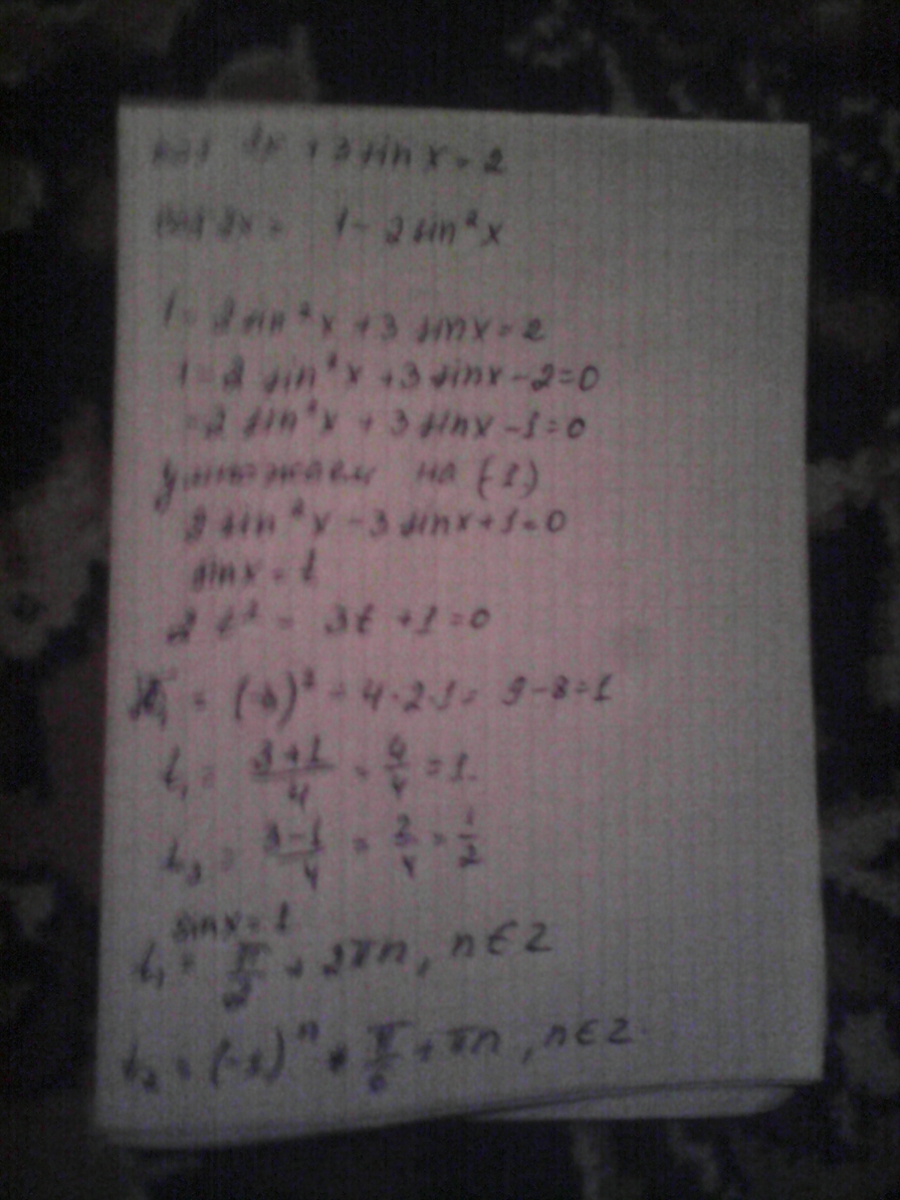 cos 2x + 3 sin x = 2
cos 2x = 1 - 2 sin² x
1 - 2 sin² x + 3 sin x = 2
1 - 2 sin² x + 3 sin x - 2 = 0
- 2 sin² x + 3 sin x - 1 = 0
умножаем на (-1)
2 sin² x - 3 sin x + 1 = 0
sin x = t
2 t² - 3t + 1 = 0
= (-3)² - 4 · 2 · 1 = 9 - 8 = 1
t₁ = (3+1)/4 = 4/4 = 1
t₂ = (3-1)/4 = 2/4 = 1/2
sin x = 1
t₁ = π/2 + 2πn, n ∈ Z
t₂ = (-1)ⁿ * π/6 + πn, n ∈ Z